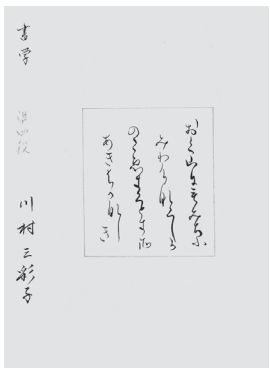 おく山にもみちふ
みわけなくしか
のこゑきくときそ
あきはかなしき
書学 川村三彩子